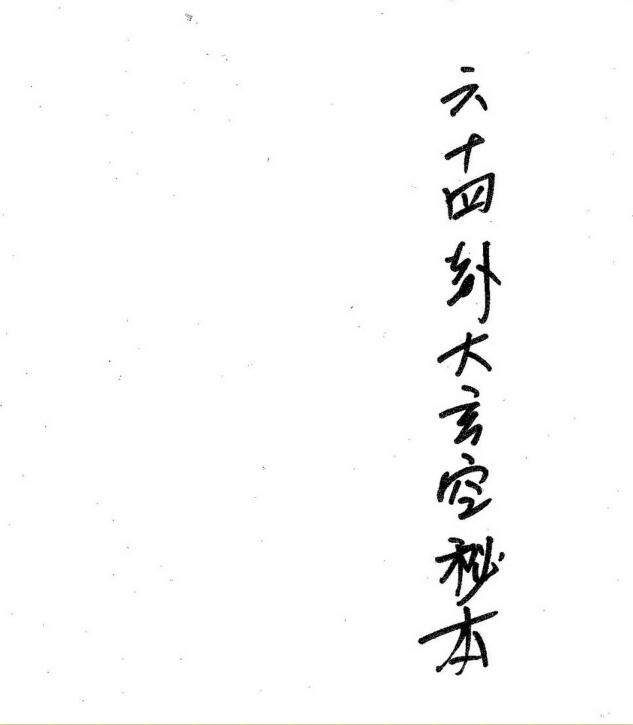 六十四卦大玄空秘本